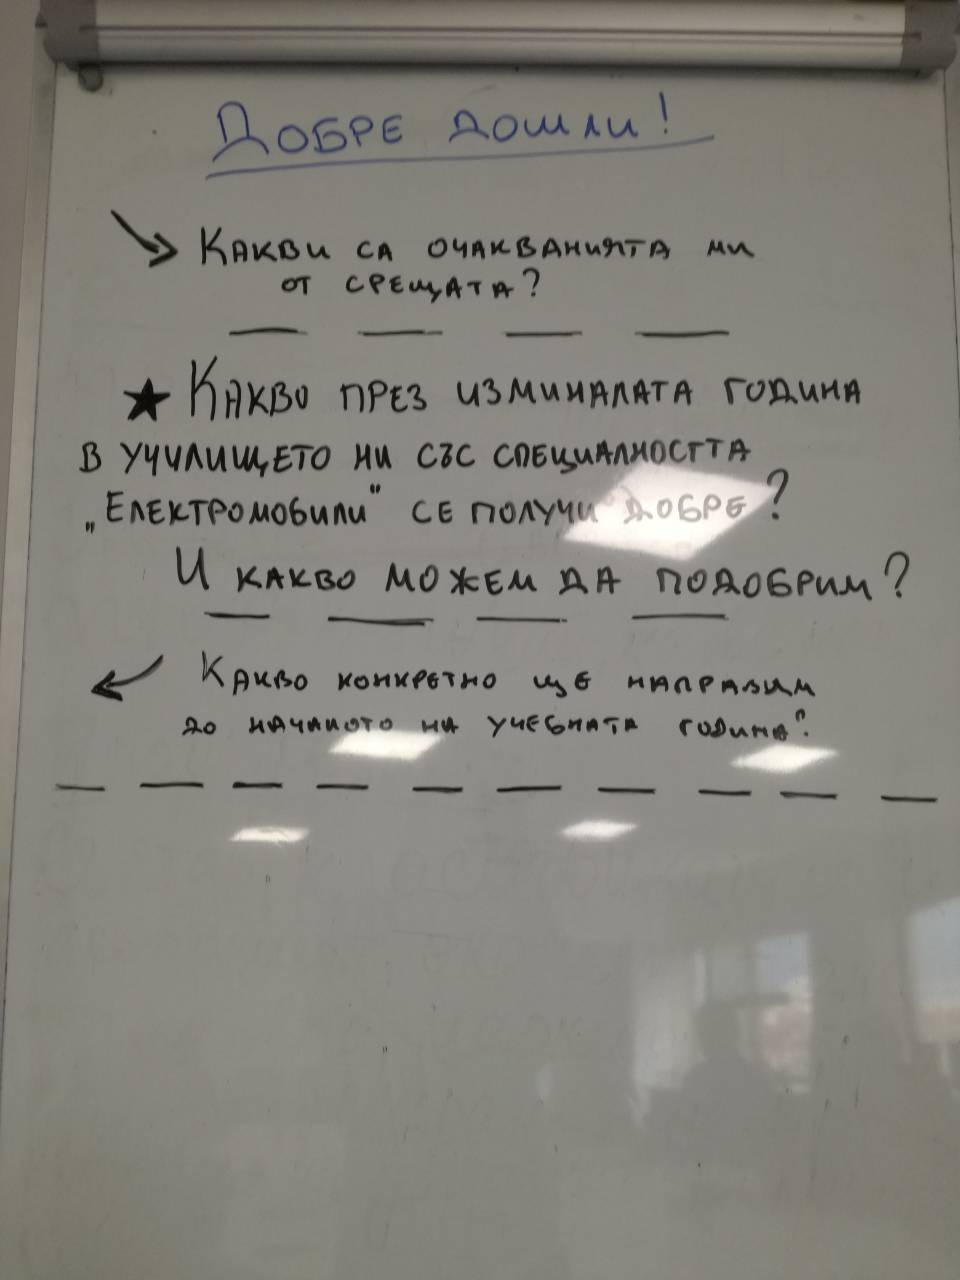 Добре дошли!
Какви са очакванията ми
от срещата?
Какво през изминалата година
в училището ни със специалността
„Електромобили" се получи добре?
И какво можем да подобрим?
Какво конкретно ще направим
до началото на учебната година?